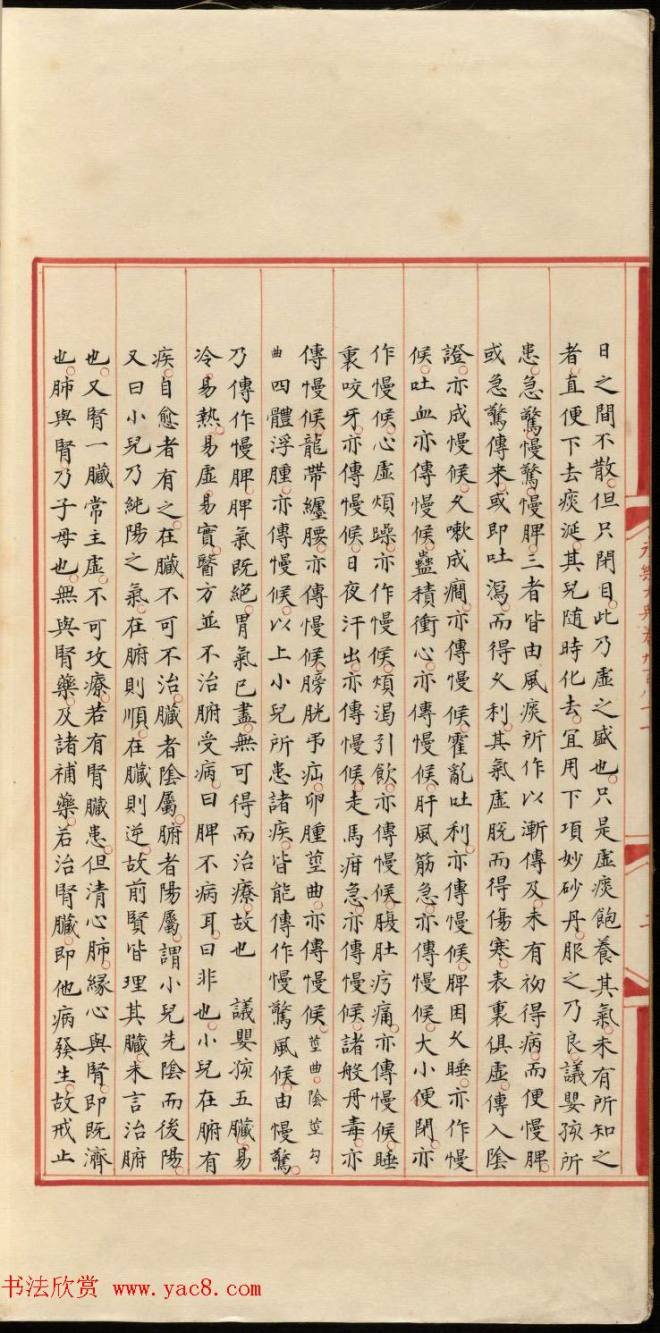 日之間不散但只閉目此乃虛之盛也只是虛痰飽養其氣未有所知之
者直便下去痰涎其兒隨時化去宜用下項妙砂丹服之乃良議嬰孩所
患急驚慢驚慢脾三者皆由風痰所作以漸傳及未有初得病而便慢脾
或急驚傳來或即吐瀉而得久利其氣虛脫而得傷寒表裏俱虛傳入陰
證亦成慢候久嗽成癇亦傳慢候霍亂吐利亦傳慢候脾困久睡亦作慢
候吐血亦傳慢候蠱積衝心亦傳慢候肝風筋急亦傳慢候大小便閉亦
作慢候心虛煩躁亦作慢候煩渴引飲亦傳慢候腹肚疞痛亦傳慢候睡
裏咬牙亦傳慢候日夜汗出亦傳慢候走馬疳急亦傳慢候諸般丹毒亦
傳慢候龍帶纏腰亦傳慢候膀胱弔疝卵腫莖曲亦傳慢候莖曲陰莖勾
曲四體浮腫亦傳慢候以上小兒所患諸疾皆能傳作慢驚風候由慢驚
乃傳作慢脾脾氣既絕胃氣已盡無可得而治療故也 議嬰孩五臟易
冷易熱易虛易實醫方並不治腑受病曰脾不病耳曰非也小兒在腑有
疾自愈者有之在臟不可不治臟者陰屬腑者陽屬謂小兒先陰而後陽
又曰小兒乃純陽之氣在腑則順在臟則逆故前賢皆理其臟未言治腑
也又腎一臟常主虛不可攻療若有腎臟患但清心肺緣心與腎即既濟
也肺與腎乃子母也無與腎藥及諸補藥若治腎臟即他病發生故戒止
二
书法欣赏 www.yac8.com